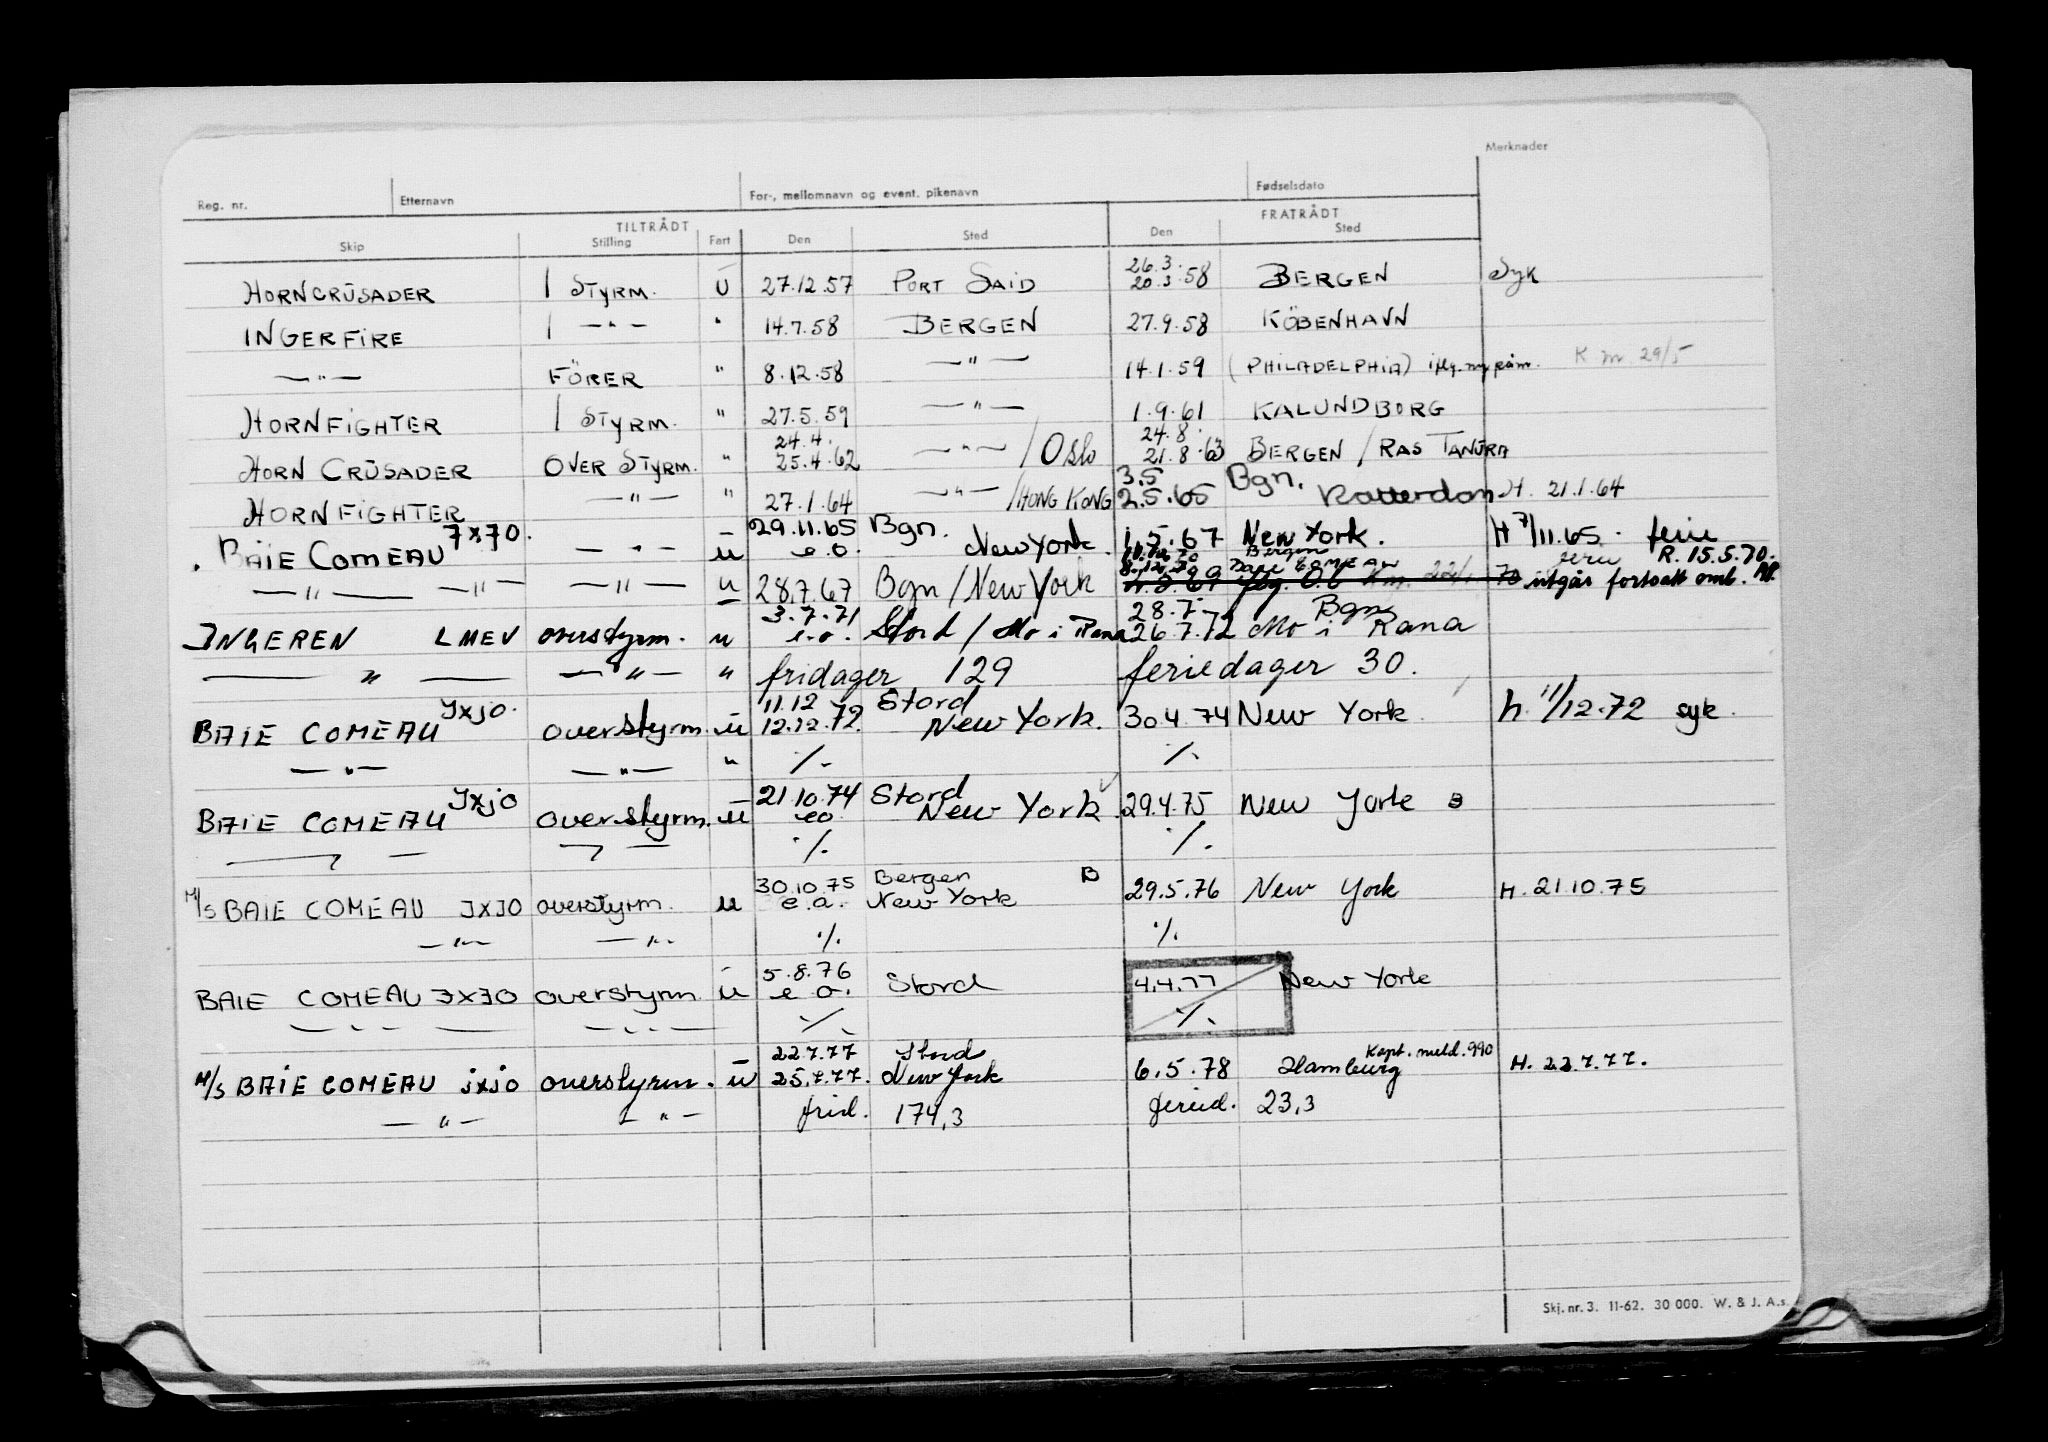 Merknader
Reg. nr. Etternavn For-, mellomnavn og event. pikenavn Fødselsdato
TILTRÅDT FRATRÅDT
Skip Stilling Fart Den Sted Den Sted
26.3.
HORNCRUSADER 1 STYRM. U 27.12.57 PORT SAID 20.3.58 BERGEN Syk
INGERFIRE 1 —"— " 14.7.58 BERGEN 27.9.58 KÖBENHAVN
—"— FÖRER " 8.12.58 —"— 14.1.59 (PHILADELPHIA) K m 29/5
HORNFIGHTER 1 STYRM. " 27.5.59 —"— 1.9.61 KALUNDBORG
24.4. 24.8.
HORN CRUSADER OVER STYRM. " 25.4.62 —"— / Oslo 21.8.63 BERGEN / RAS TANURA
3.5 Bgn.
HORNFIGHTER —"— " 27.1.64 —"— /HONG KONG 2.5.65 Rotterdam H. 21.1.64
7x70. 29.11.65 Bgn.
BAIE COMEAU —"— u e.o. New York. 1.5.67 New York. H 7/11.65. ferie
Bergen R. 15.5.70.
—"— —"— —"— u 28.7.67 Bgn / New York utgår fortsatt omb.
3.7.71 28.7. Bgn
INGEREN LMEV overstyrm. u e.o. Stord / Mo i Rana 26.7.72 Mo i Rana
—"— —"— " fridager 129 feriedager 30.
JXJO. 11.12 Stord
BAIE COMEAU overstyrm. u 12.12.72. New York. 30.4.74 New York. h. 11/12.72 syk.
—"— —"— " ./. ./.
JXJO 21.10.74 Stord
BAIE COMEAU overstyrm. u eo New York 29.4.75 New York
./. ./.
30.10.75 Bergen B
M/S BAIE COMEAU JXJO overstyrm. u e.o. New York 29.5.76 New York H. 21.10.75
—"— —"— ./. ./.
5.8.76
BAIE COMEAU JXJO overstyrm. u e o. Stord 4.4.77 New York
—"— —"— ./. ./.
22.7.77 Stord Kapt. meld. 990
M/S BAIE COMEAU JXJO overstyrm. u 25.7.77. New York 6.5.78 Hamburg H. 22.7.77.
—"— —"— frid. 174,3 feried. 23,3
Skj. nr. 3. 11-62. 30 000. W. & J. A.s.